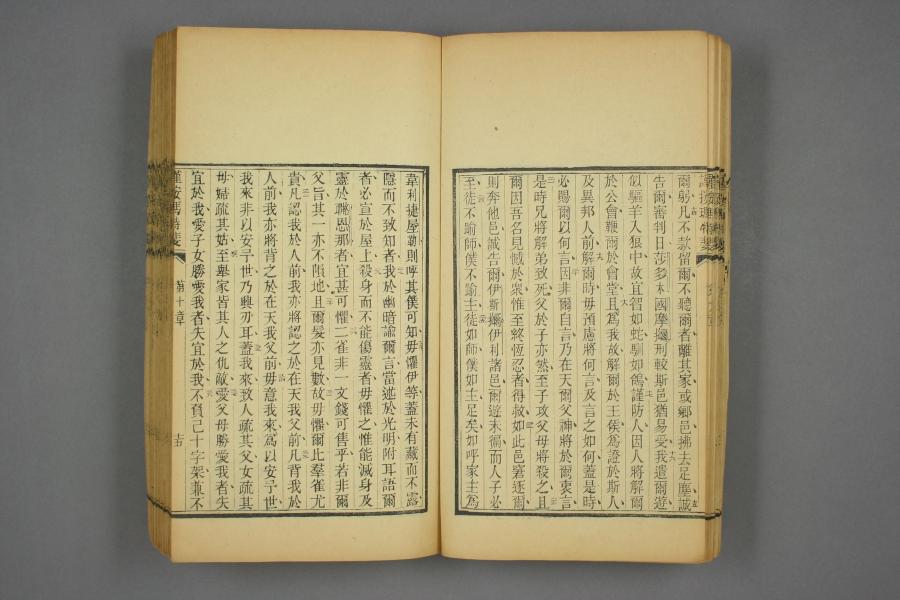 爾躬凡不款留爾不聽爾者離其家或鄉邑拂去足塵誠
告爾審判日莎多本國摩擸刑較斯邑猶易受我遣爾遊
似驅羊入狼中故宜智如蛇馴如鴿謹防人因人將解爾
於公會鞭爾於會堂且為我故解爾於王侯為證於斯人
及異邦人前解爾時毋預慮將何言及言之如何蓋是時
必賜爾以何言因非爾自言乃在天爾父神將於爾衷言
是時兄將解弟致死父於子亦然至子攻父母將殺之且
爾因吾名見憾於衆惟至終恆忍者得救如此邑窘逐爾
則奔他邑誠告爾伊斯擸伊利諸邑爾遊未徧而人子必
至徒不踰師僕不踰主徒如師僕如主足矣如呼家主為
韋利捷屋勒則呼其僕可知毋懼伊等蓋未有藏而不露
隱而不致知者我於幽暗諭爾言當述於光明附耳語爾
者必宣於屋上殺身而不能傷靈者毋懼之惟能滅身及
靈於恩那者宜甚可懼二雀非一文錢可售乎若非爾
父旨其一亦不隕地且爾髮亦見數故毋懼爾比羣雀尤
貴凡認我於人前我亦將認之於在天我父前凡背我於
人前我亦將背之於在天我父前毋意我來為以安予世
我來非以安予世乃興刃耳蓋我來致人疏其父女疏其
母媳疏其姑至舉家皆其人之仇敵愛父母勝愛我者失
宜於我愛子女勝愛我者失宜於我不負己十字架兼不
第十章